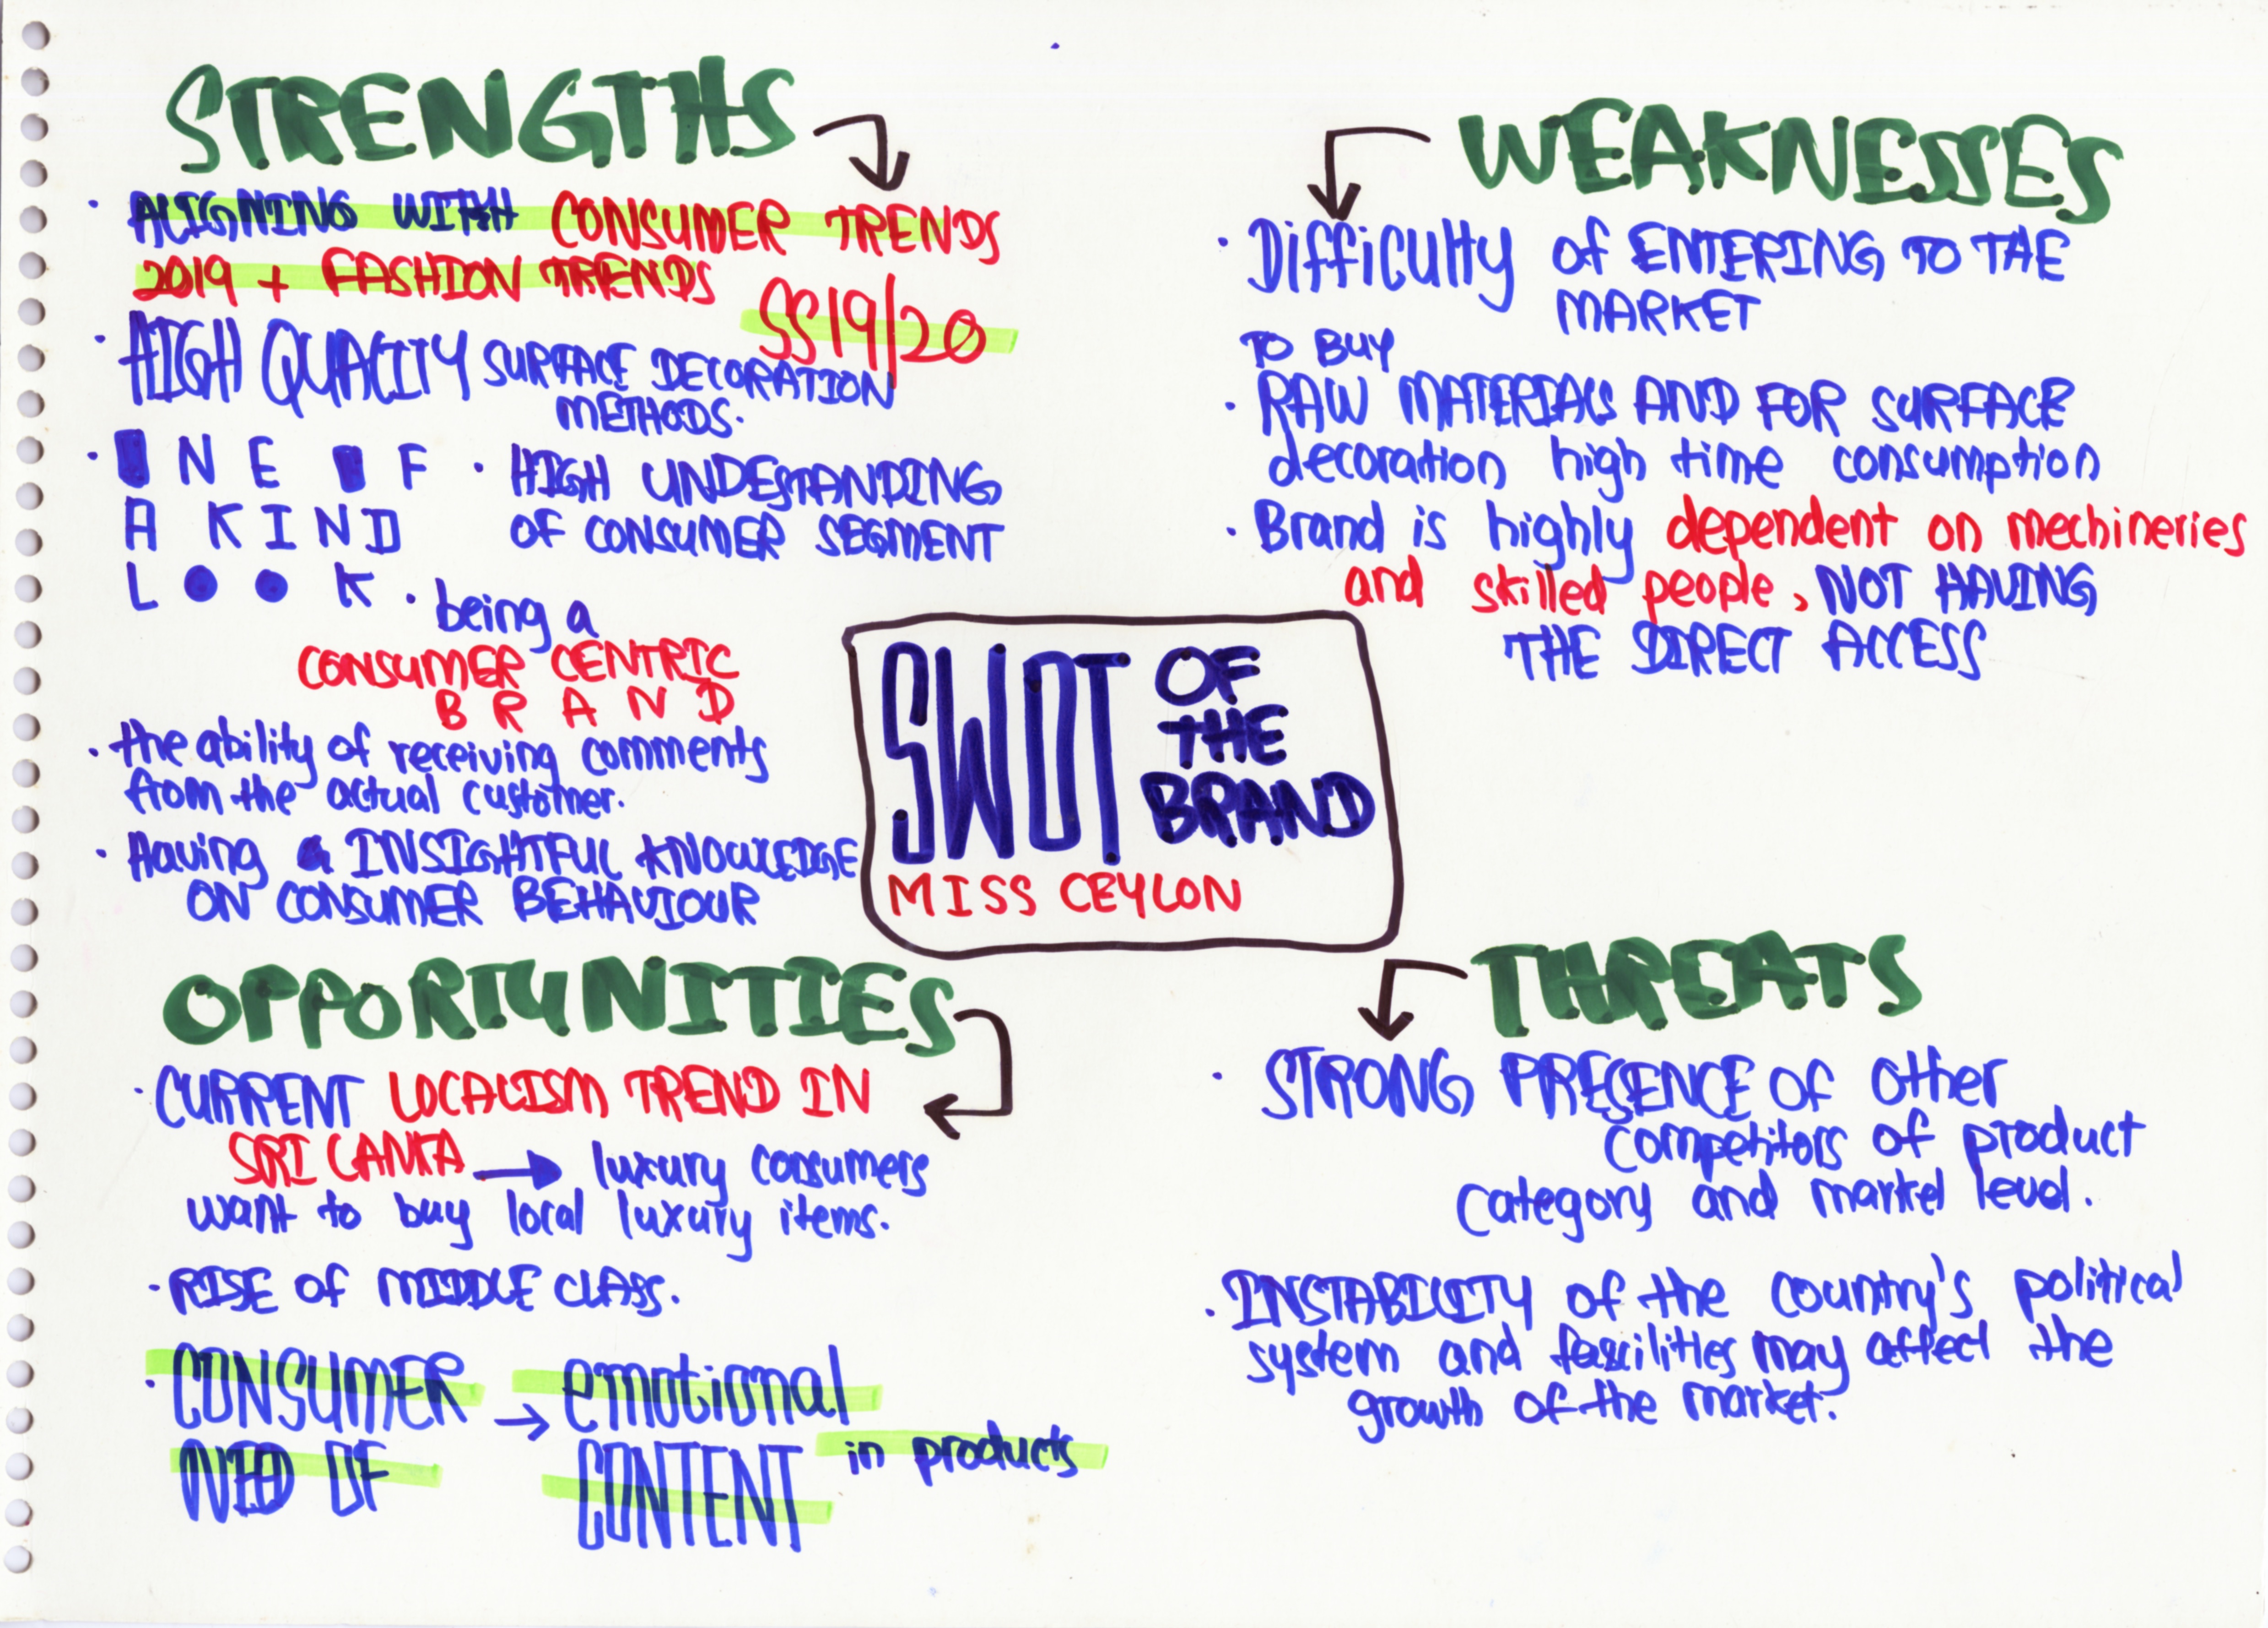 STRENGTHS
· ALIGNING WITH CONSUMER TRENDS
2019 + FASHION TRENDS
SS19/20
· HIGH QUALITY SURFACE DECORATION
METHODS.
· ONE OF
A KIND
LOOK
· HIGH UNDESTANDING
OF CONSUMER SEGMENT
· being a
CONSUMER CENTRIC
BRAND
· the ability of receiving comments
from the actual customer.
· Having a INSIGHTFUL KNOWLEDGE
ON CONSUMER BEHAVIOUR
WEAKNESSES
· Difficulty of ENTERING TO THE
MARKET
TO BUY
· RAW MATERIALS AND FOR SURFACE
decoration high time consumption
· Brand is highly dependent on mechineries
and skilled people, NOT HAVING
THE DIRECT ACCESS
SWOT OF
THE
BRAND
MISS CEYLON
OPPORTUNITIES
· CURRENT LOCALISM TREND IN
SRI LANKA → luxury consumers
want to buy local luxury items.
· RISE OF MIDDLE CLASS.
· CONSUMER → emotional
NEED OF CONTENT in products
THREATS
· STRONG PRESENCE OF other
competitors of product
category and market level.
· INSTABILITY of the country's political
system and fascilities may affect the
growth of the market.